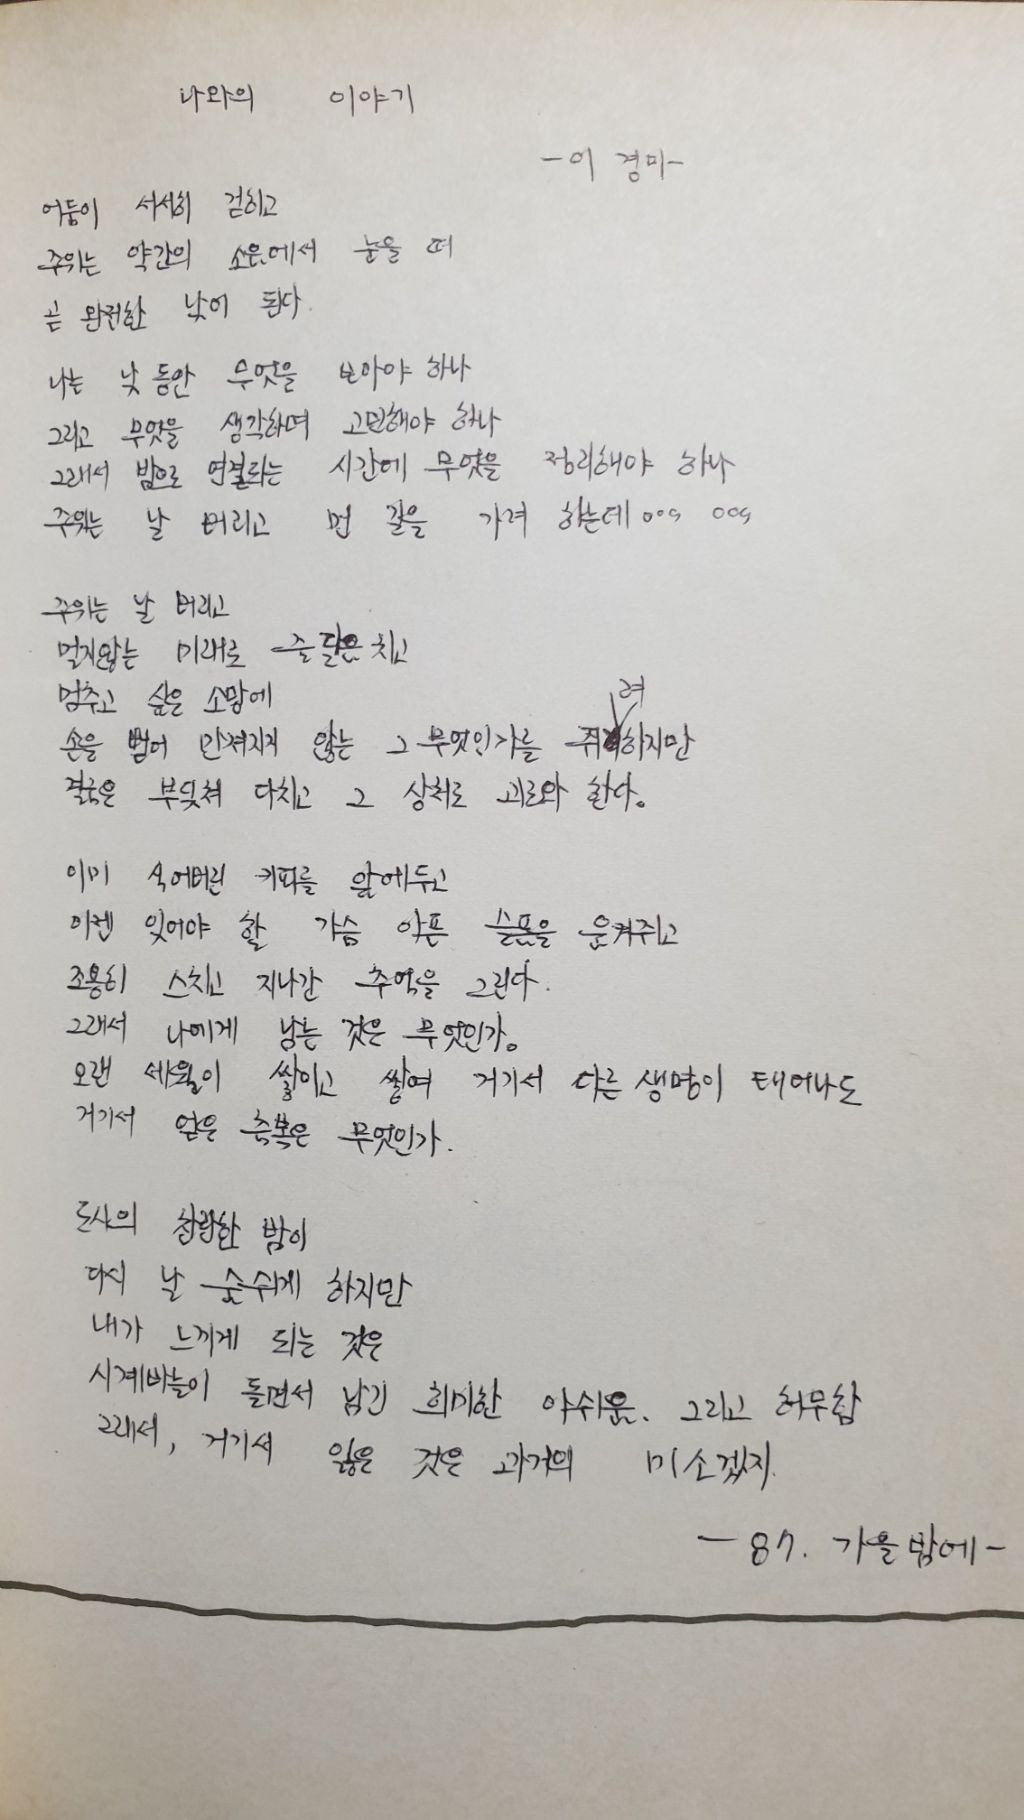 나와의 이야기
-이 경미-
어둠이 서서히 걷히고
주위는 약간의 소음에서 눈을 떠
곧 완전한 낮이 된다.
나는 낮 동안 무엇을 보아야 하나
그리고 무엇을 생각하며 고민해야 하나
그래서 밤으로 연결되는 시간에 무엇을 정리해야 하나
주위는 날 버리고 먼 길을 가려 하는데... ...
주위는 날 버리고
멀지않는 미래로 줄달음치고
멈추고 싶은 소망에
손을 벌어 만져지지 않는 그 무엇인가를 쥐려하지만
결국은 부딪쳐 다치고 그 상처로 괴로와 한다.
이미 식어버린 커피를 앞에두고
이젠 잊어야 할 가슴 아픈 슬픔을 움켜쥐고
조용히 스치고 지나간 추억을 그린다.
그래서 나에게 남는 것은 무엇인가.
오랜 세월이 쌓이고 쌓여 거기서 다른 생명이 태어나도
거기서 얻은 축복은 무엇인가.
도시의 찬란한 밤이
다시 날 숨쉬게 하지만
내가 느끼게 되는 것은
시계바늘이 돌면서 남긴 희미한 아쉬움. 그리고 허무함
그래서, 거기서 잃은 것은 과거의 미소겠지.
-87. 가을밤에-